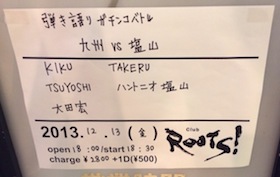 弾き語りガチンコバトル
九州 VS 塩山
KIKU TAKERU
TSUYOSHI ハントニオ塩山
大田宏
2013.12.13(金)
Club ROOTS!
open 18:00/start 18:30
charge ¥1800+1D(¥500)